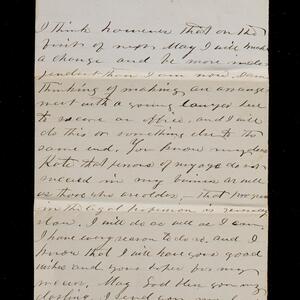 I think however that on the
first of next May I will make
a change and be more inde-
pendent than I am now. I am
thinking of making an arrange
ment with a young lawyer here
to secure an office, and I will
do this or something else to the
same end. You know my dear
Kate that persons of my age do not
succeed in my business as well
as those who are older, — that progress
in the legal profession is
slow. I will do as well as I can.
I have every reason to do so, and I
know that I will have your good
wishes and your hopes for my
success. May God bless you my
darling. I send you my